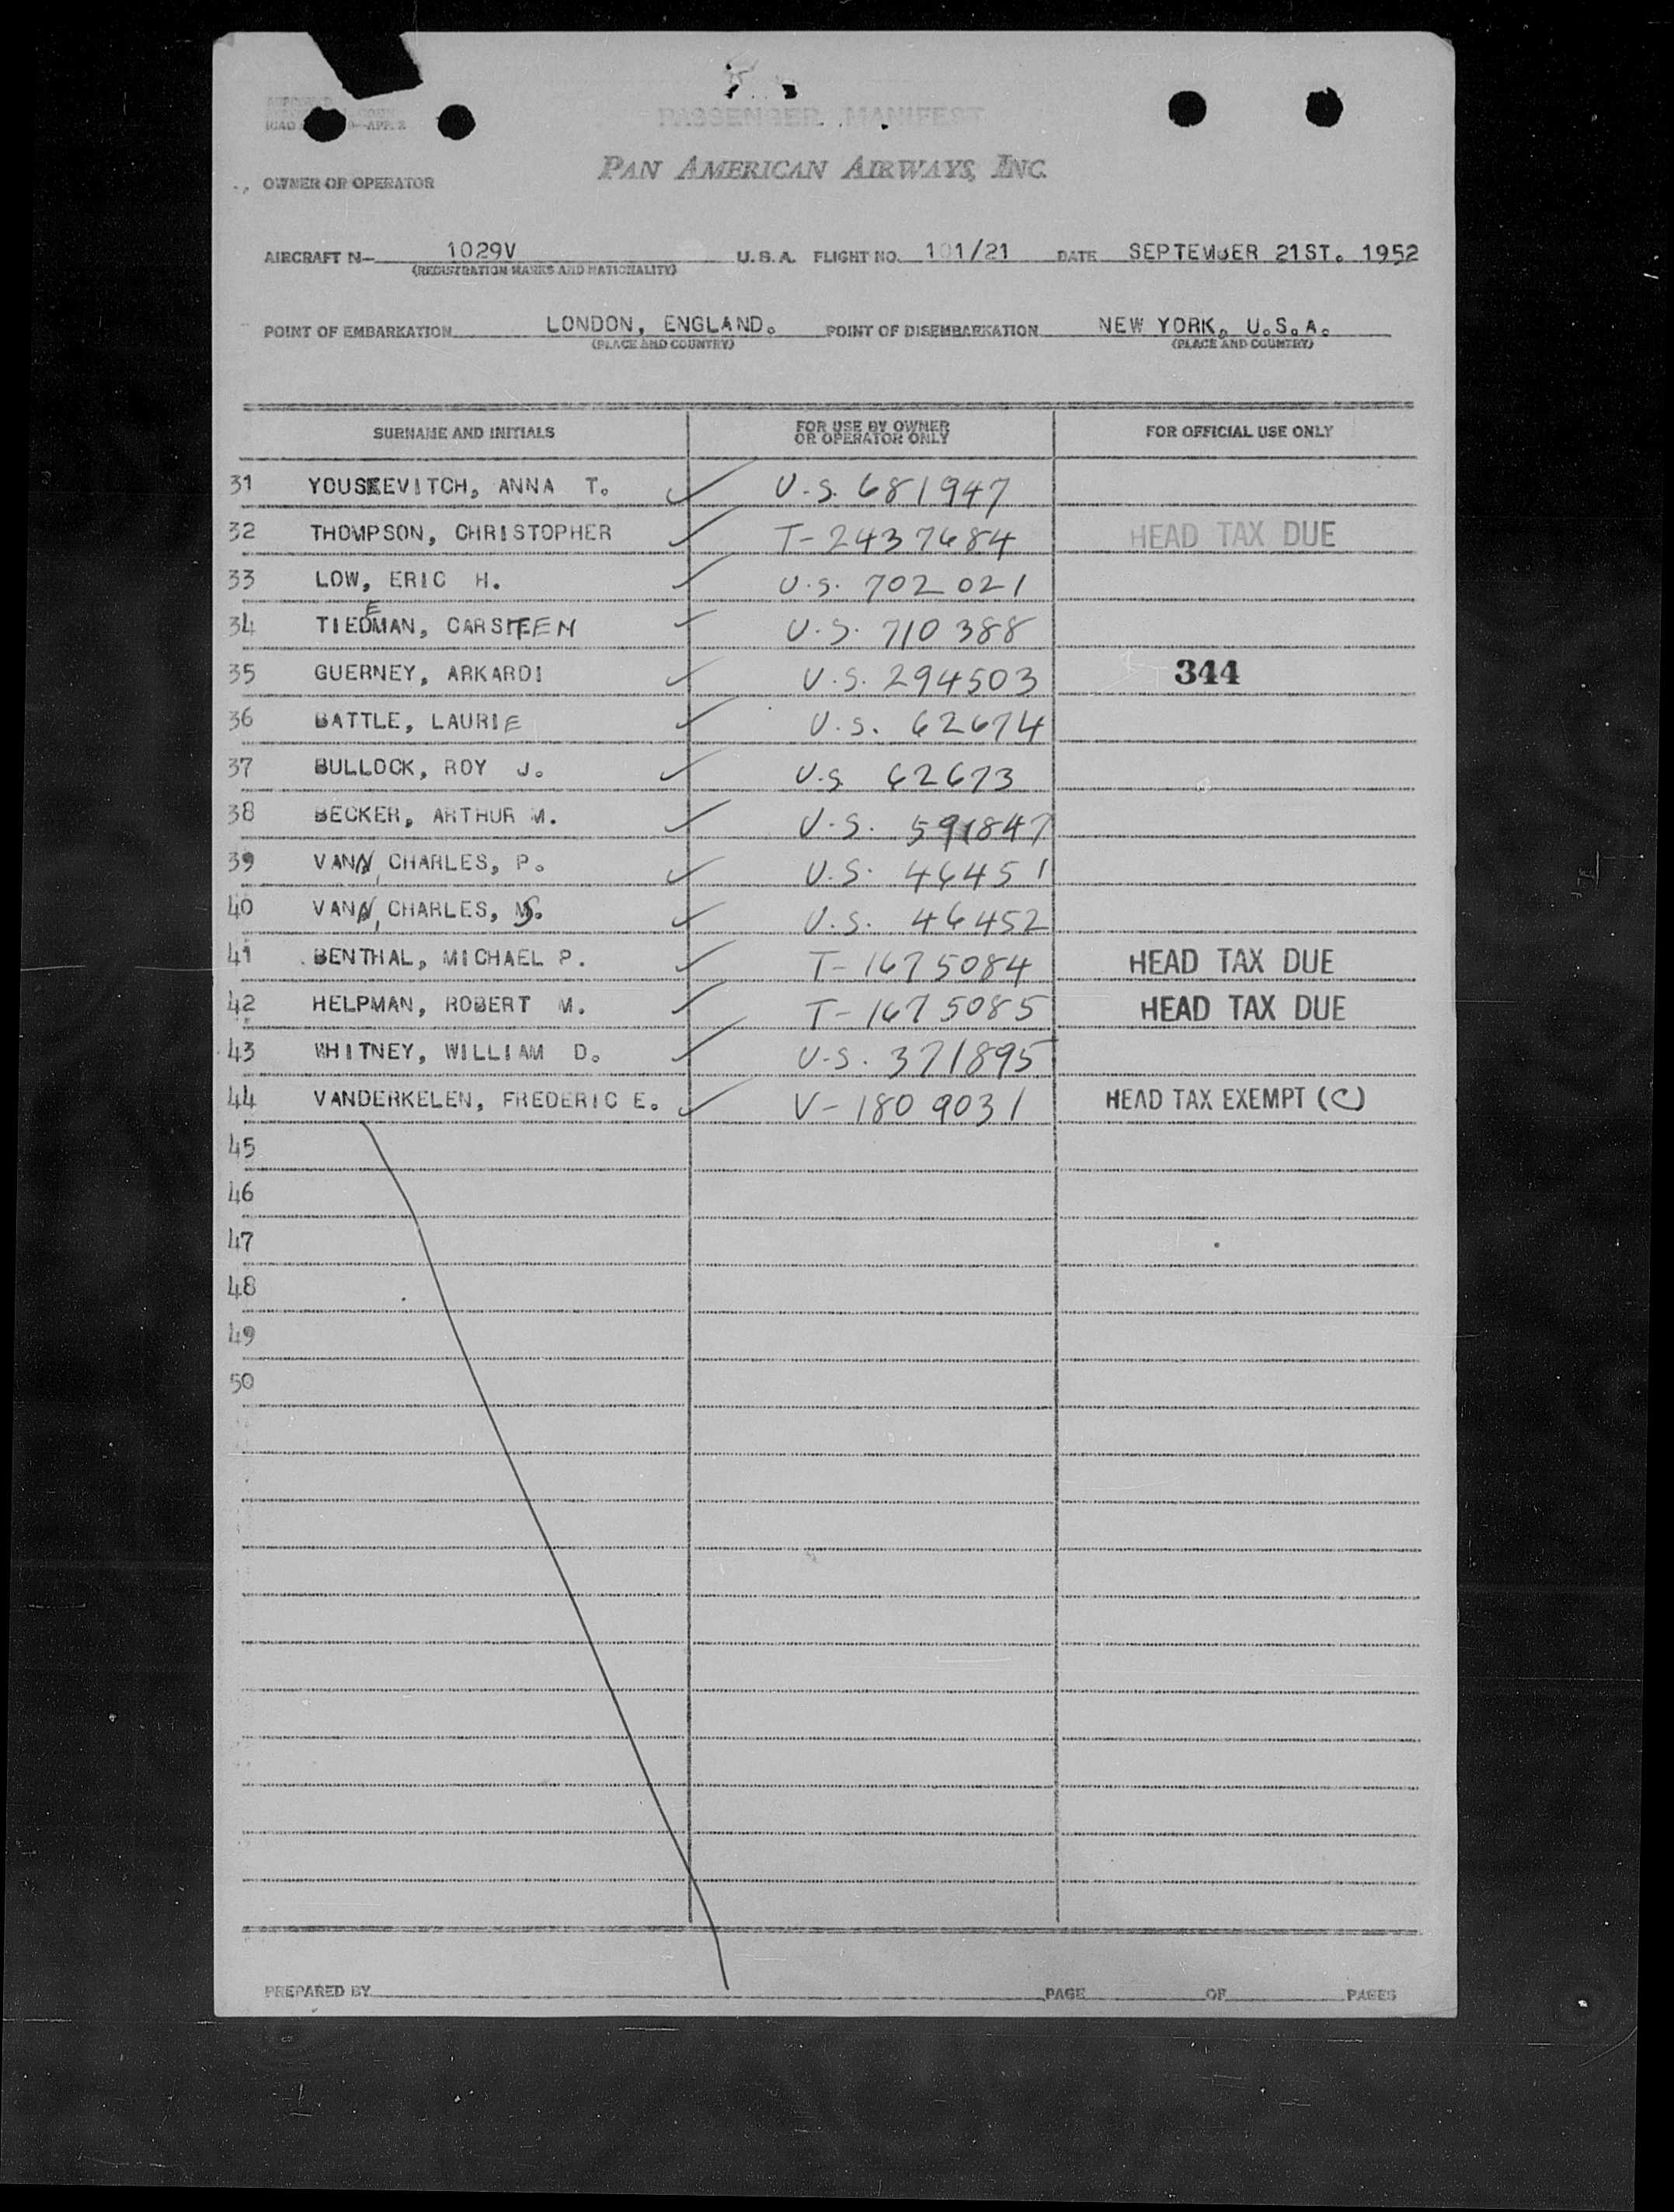 PASSENGER MANIFEST
ICAO APP. 2
PAN AMERICAN AIRWAYS, INC.
OWNER OR OPERATOR
AIRCRAFT N- 1029V U.S.A. FLIGHT NO. 101/21 DATE SEPTEMBER 21ST. 1952
(REGISTRATION MARKS AND NATIONALITY)
POINT OF EMBARKATION LONDON, ENGLAND. POINT OF DISEMBARKATION NEW YORK, U.S.A.
(PLACE AND COUNTRY) (PLACE AND COUNTRY)
SURNAME AND INITIALS FOR USE BY OWNER OR OPERATOR ONLY FOR OFFICIAL USE ONLY
31 YOUSKEVITCH, ANNA T. U.S. 681947
32 THOMPSON, CHRISTOPHER T-2437684 HEAD TAX DUE
33 LOW, ERIC H. U.S. 702021
34 TIEDEMAN, CARSTEN U.S. 710388
35 GUERNEY, ARKARDI U.S. 294503 344
36 BATTLE, LAURIE U.S. 62674
37 BULLOCK, ROY J. U.S. 62673
38 BECKER, ARTHUR M. U.S. 591847
39 VANN, CHARLES, P. U.S. 46451
40 VANN, CHARLES, S. U.S. 46452
41 BENTHAL, MICHAEL P. T-1675084 HEAD TAX DUE
42 HELPMAN, ROBERT M. T-1675085 HEAD TAX DUE
43 WHITNEY, WILLIAM D. U.S. 371895
44 VANDERKELEN, FREDERIC E. V-1809031 HEAD TAX EXEMPT (C)
45
46
47
48
49
50
PREPARED BY PAGE OF PAGES